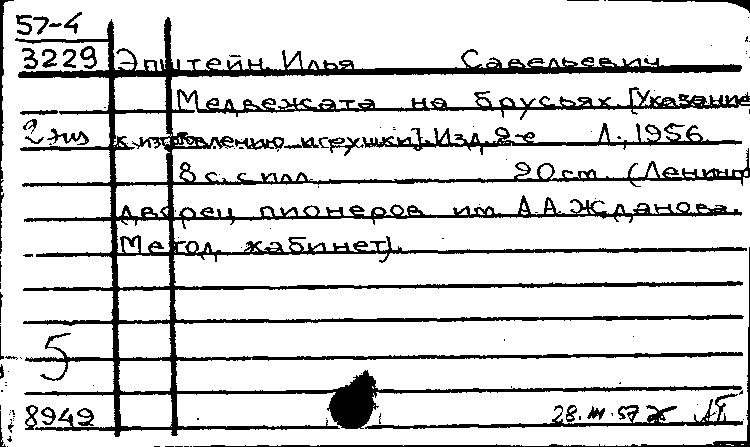 57-4
3229 Эпштейн, Илья Савельевич
Медвежата на брусьях. [Указание
2 экз к изготовлению игрушки]. Изд. 2-е Л., 1956.
8 с. с илл. 20 см. (Ленингр
дворец пионеров им. А.А. Жданова.
Метод. кабинет).
5
8949 28.III.57